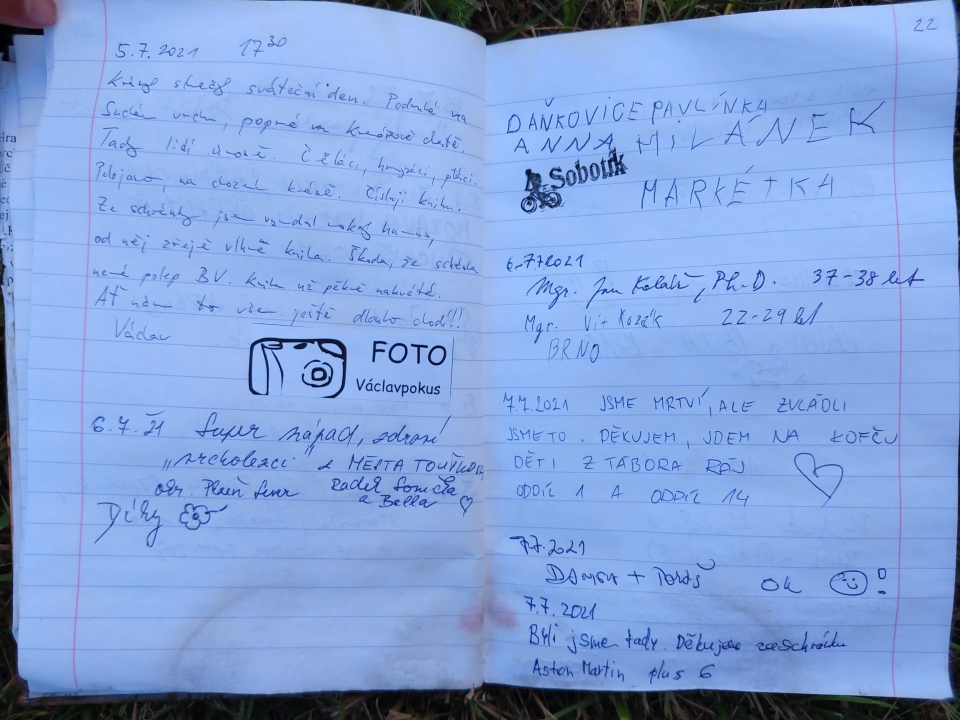 5.7.2021 17³⁰
Krásný sváteční den. Podruhé na
Suchém vrchu, poprvé na Kramářově chatě.
Tady lidí
Pobejevo, na dozal krásně. Čísluji knihu.
Ze schránky jsem vyndal
od něj zřejmě vlhne kniha. Škoda, že schránka
nemá polep BV. Kniha už pěkně nakvétá.
Ať nám to všem ještě dlouho chodí!!
Václav
FOTO
Václavpokus
6.7.21 Super nápad, zdraví
„vrcholaci" z MĚSTA TOUŠKOVA
okr. Plzeň Sever Radek
a Bella
Díky
22
DAŇKOVICE PAVLÍNKA
ANNA MILÁNEK
Sobotík
MARKÉTKA
6.7.2021
Mgr. Jan Kolář, Ph.D. 37-38 let
Mgr. Vít Kozák 22-29 let
BRNO
7.7.2021 JSME MRTVÍ, ALE ZVLÁDLI
JSME TO. DĚKUJEM, JDEM NA KOFČU
DĚTI Z TÁBORA RÁJ
ODDÍL 1 A ODDÍL 14
7.7.2021
DANKA + TOMÁŠ OK !
7.7.2021
Byli jsme tady. Děkujeme za schránku
Aston Martin plus 6